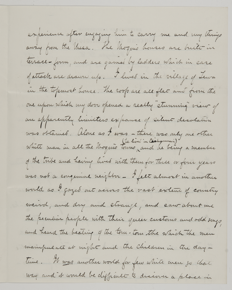 experience after engaging him to carry me and my things
away from the Mesa. The Moquis houses are built in
terrace-form, and are gained by ladders which in case
of attack are drawn up. I lived in the village of Tewa
in the topmost home. The roofs are all flat and from the
one upon which my door opened a really "stunning" view of
an apparently limitless expanse of silent desolation
was obtained. Alone as I was - there was only one other
white man in all the Moquis
and he being a member
of the Tribe and having lived with them for three or four years
was not a congenial neighbor - I felt almost in another
world as I gazed out across the vast extent of country
weird, and dry and strange, and saw about me
the peculiar people with their queer customs and odd
and heard the beating of the tom-tom
at night and the children in the day
time. It was another world for few white men go that
way and it would be difficult to a place in